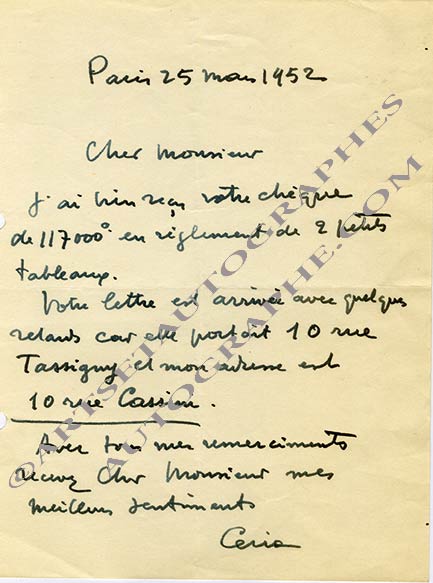 Paris 25 mars 1952
Cher Monsieur
J'ai bien reçu votre chèque
de 117000° en règlement de 2 petits
tableaux.
Votre lettre est arrivée avec quelques
retards car elle portait 10 rue
Tassigny et mon adresse est
10 rue Cassini.
Avec tous mes remerciments
recevez Cher Monsieur mes
meilleurs sentiments
Ceria
©ARTSETAUTOGRAPHES
AUTOGRAPHE.COM